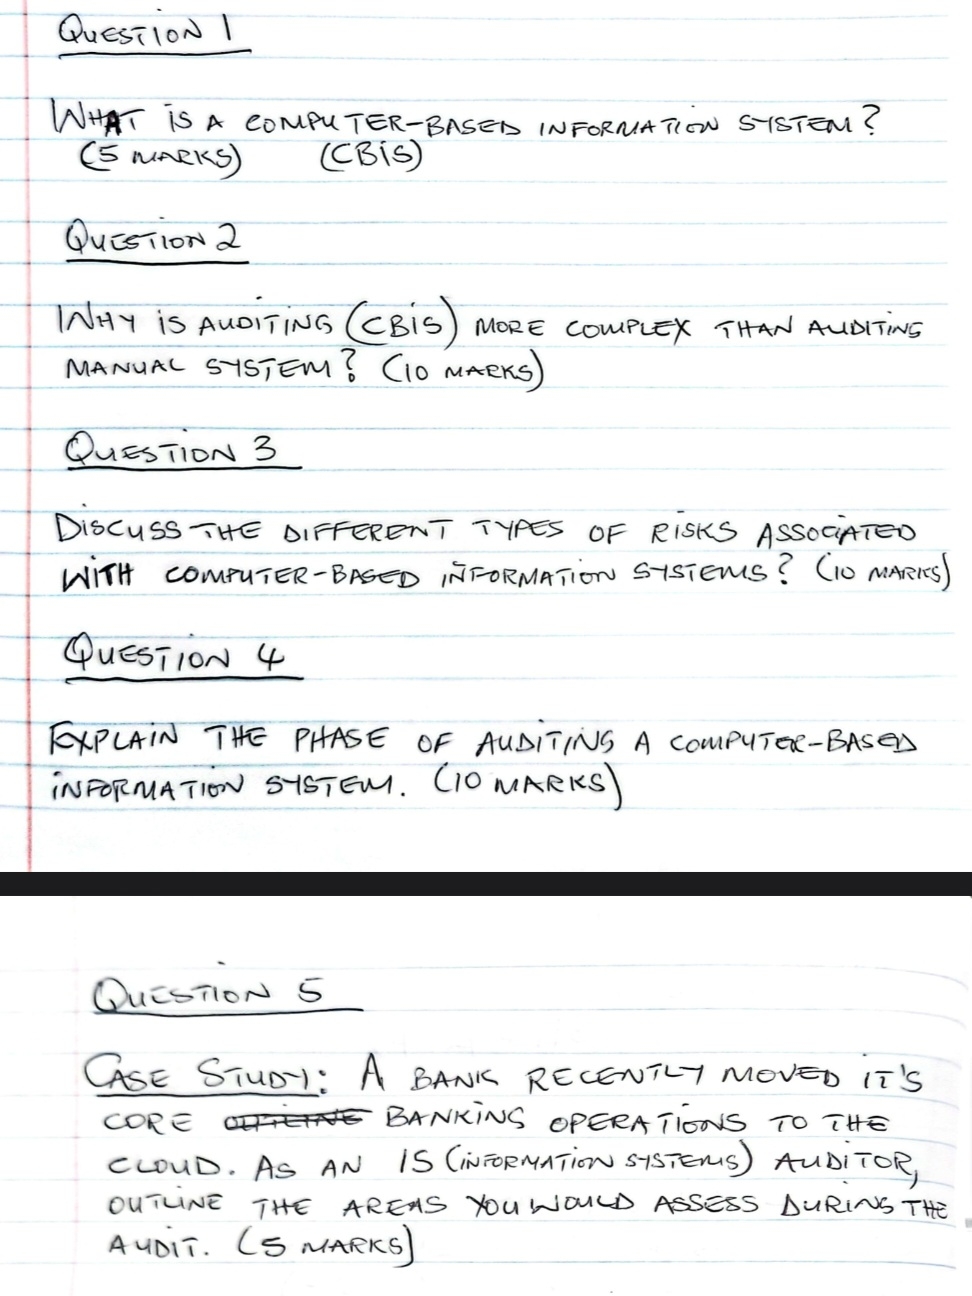 QUESTION 1
WHAT IS A COMPUTER-BASED INFORMATION SYSTEM?
(5 MARKS) (CBIS)
QUESTION 2
WHY IS AUDITING (CBIS) MORE COMPLEX THAN AUDITING
MANUAL SYSTEM? (10 MARKS)
QUESTION 3
DISCUSS THE DIFFERENT TYPES OF RISKS ASSOCIATED
WITH COMPUTER-BASED INFORMATION SYSTEMS? (10 MARKS)
QUESTION 4
EXPLAIN THE PHASE OF AUDITING A COMPUTER-BASED
INFORMATION SYSTEM. (10 MARKS)
QUESTION 5
CASE STUDY: A BANK RECENTLY MOVED IT'S
CORE BANKING OPERATIONS TO THE
CLOUD. AS AN IS (INFORMATION SYSTEMS) AUDITOR,
OUTLINE THE AREAS YOU WOULD ASSESS DURING THE
AUDIT. (5 MARKS)